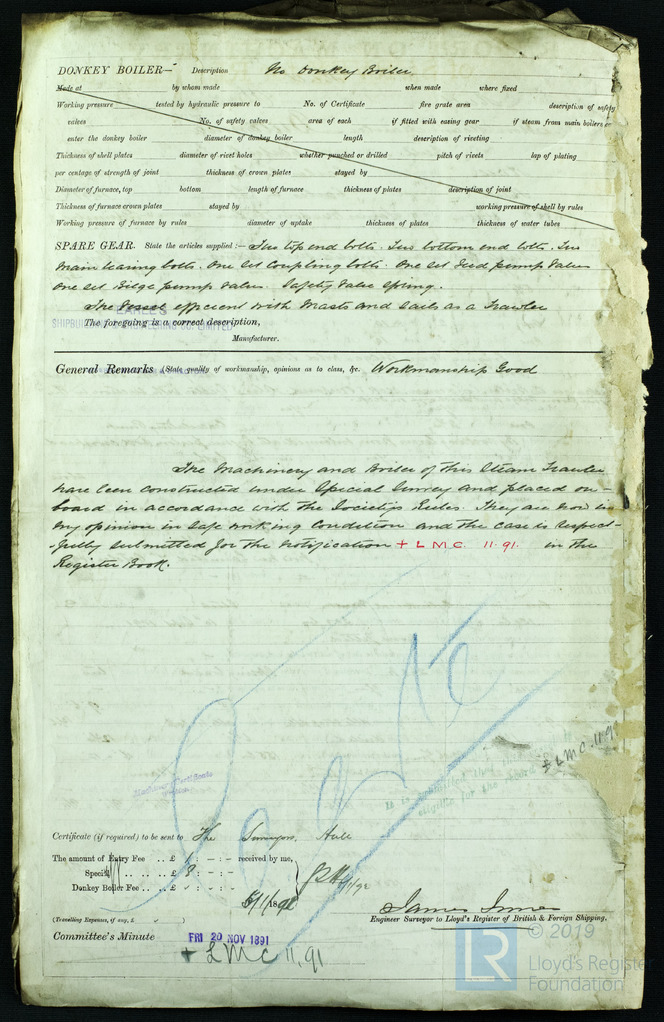 DONKEY BOILER— Description No Donkey Boiler.
Made at by whom made when made where fixed
Working pressure tested by hydraulic pressure to No. of Certificate fire grate area description of safety
valves No. of safety valves area of each if fitted with easing gear if steam from main boilers or
enter the donkey boiler diameter of donkey boiler length description of riveting
Thickness of shell plates diameter of rivet holes whether punched or drilled pitch of rivets lap of plating
per centage of strength of joint thickness of crown plates stayed by
Diameter of furnace, top bottom length of furnace thickness of plates description of joint
Thickness of furnace crown plates stayed by working pressure of shell by rules
Working pressure of furnace by rules diameter of uptake thickness of plates thickness of water tubes
SPARE GEAR. State the articles supplied :— Two top end bolts. Two bottom end bolts. Two
Main bearing bolts. One set Coupling bolts. One set Feed pump Valves
One set Bilge pump Valves. Safety Valve Spring.
The Vessel efficient with Masts and Sails as a Trawler
EARLE'S
SHIPBUILDING & ENGINEERING CO. LIMITED
The foregoing is a correct description,
Manufacturer.
General Remarks (State quality of workmanship, opinions as to class, &c. Workmanship Good
The Machinery and Boiler of this Steam Trawler
have been constructed under Special Survey and placed on-
board in accordance with the Society's Rules. They are now in
my opinion in safe working Condition and the case is respect-
-fully submitted for the notification + L M C. 11.91. in the
Register Book.
It is submitted that
eligible for the
+ L M C. 11.91
Machinery Certificate
Certificate (if required) to be sent to The Surveyors, Hull
The amount of Entry Fee .. £ 1 : - : - received by me,
Special .. .. .. £ 8 : - : -
Donkey Boiler Fee .. .. £ : - : -
(Travelling Expenses, if any, £ )
James Innes
Engineer Surveyor to Lloyd's Register of British & Foreign Shipping.
Committee's Minute FRI 20 NOV 1891
+ L M C 11.91
© 2019
LR Lloyd's Register
Foundation